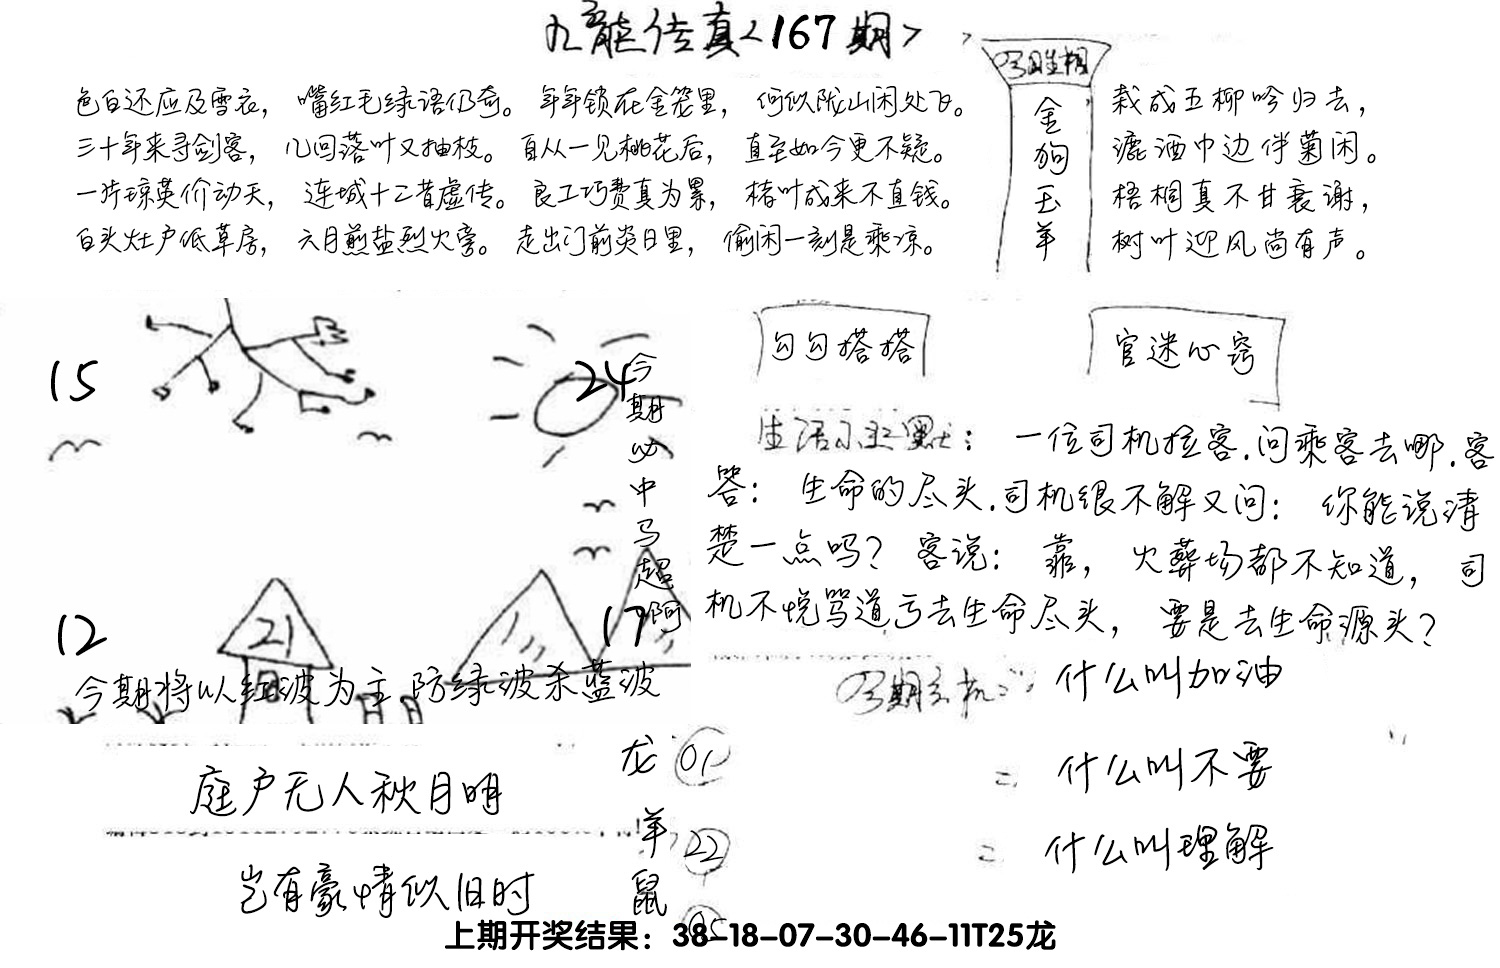 九龙传真<167期>
色白还应及雪衣，嘴红毛绿语仍奇。年年锁在金笼里，何似陇山闲处飞。
三十年来寻剑客，几回落叶又抽枝。自从一见桃花后，直至如今更不疑。
一片琼英价动天，连城十二昔虚传。良工巧费真为累，楮叶成来不直钱。
白头灶户低草房，六月煎盐烈火旁。走出门前炎日里，偷闲一刻是乘凉。
金狗玉羊
栽成五柳吟归去，
漉酒中边伴菊闲。
梧桐真不甘衰谢，
树叶迎风尚有声。
15
24
12
21
17
今期必中马超啊
今期将以红波为主防绿波杀蓝波
勾勾搭搭
官迷心窍
生活小幽默：一位司机拉客.问乘客去哪.客
答：生命的尽头.司机很不解又问：你能说清
楚一点吗？客说：靠，火葬场都不知道，司
机不悦骂道亏去生命尽头，要是去生命源头？
什么叫加油
什么叫不要
什么叫理解
庭户无人秋月明
岂有豪情似旧时
龙 01
羊 22
鼠 05
上期开奖结果：38-18-07-30-46-11T25龙